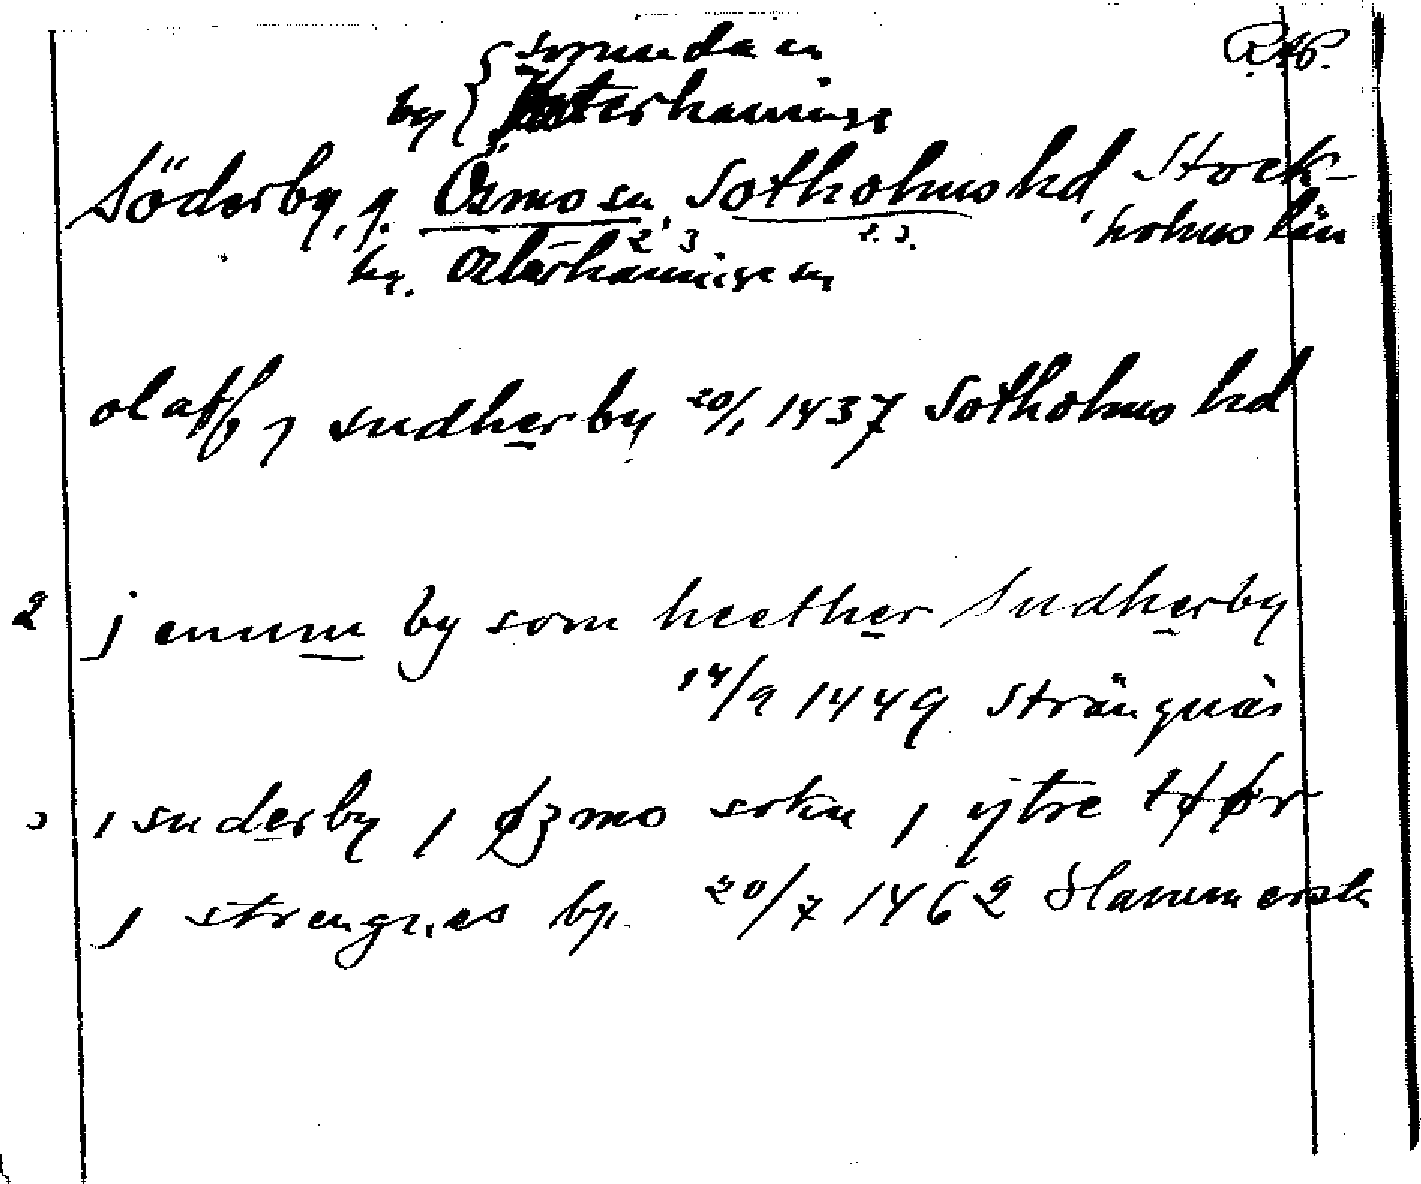 Sorunda sn RAP.
by { Österhaninge
Söderby, g. Ösmo sn, Sotholms hd, Stock-
2, 3 2. 3. holms län
by. Österhaninge sn
olaff j sudherby 20/1 1437 Sotholms hd
2 j enum by som heether Sudherby
14/9 1449 Strängnäs
3 i suderby i øzmo sokn i ytre tør
j strengnes bp. 20/7 1462 Hammersta